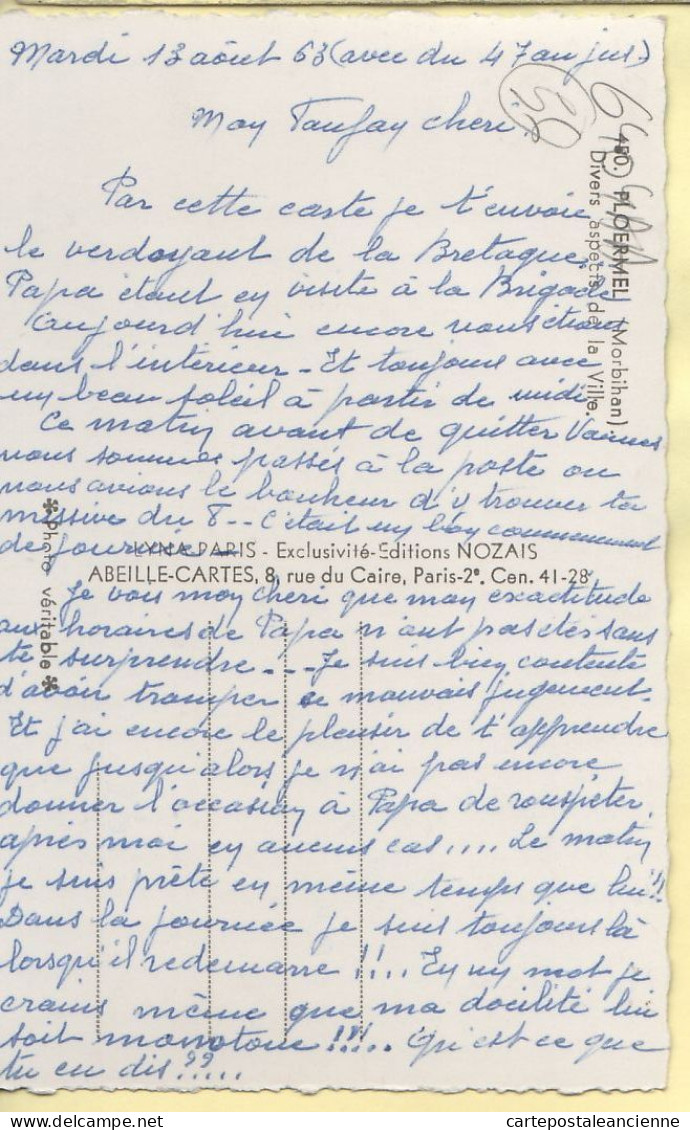 Mardi 13 août 63 (avec du 47 au jus)
Mon Fanfan chéri.
30
Par cette carte je t'envoie
le verdoyant de la Bretagne.
Papa étant en visite à la Brigade
aujourd'hui encore nous étions
dans l'intérieur - Et toujours avec
un beau soleil à partir de midi
Ce matin avant de quitter Vannes
nous sommes passés à la poste ou
nous avions le bonheur d'y trouver ta
missive du 8.. C'était un bon commencement
de journée -
Je vois mon chéri que mon exactitude
aux horaires de Papa n'ont pas étés sans
te surprendre - - - Je suis bien contente
d'avoir tromper ce mauvais jugement.
Et j'ai encore le plaisir de t'apprendre
que jusqu'alors je n'ai pas encore
donner l'occasion à Papa de rouspéter
après moi en aucuns cas.... Le matin
je suis prête en même temps que lui!!
Dans la journée je suis toujours là
lorsqu'il redemarre!!... En un mot je
crains même que ma docilité lui
soit monotone!!!... Qu'est ce que
tu en dis??....
450. PLOERMEL (Morbihan)
Divers aspects de la Ville.
LYNA-PARIS - Exclusivité-Editions NOZAIS
ABEILLE-CARTES, 8, rue du Caire, Paris-2e. Cen. 41-28
Photo véritable
cartepostaleancienne